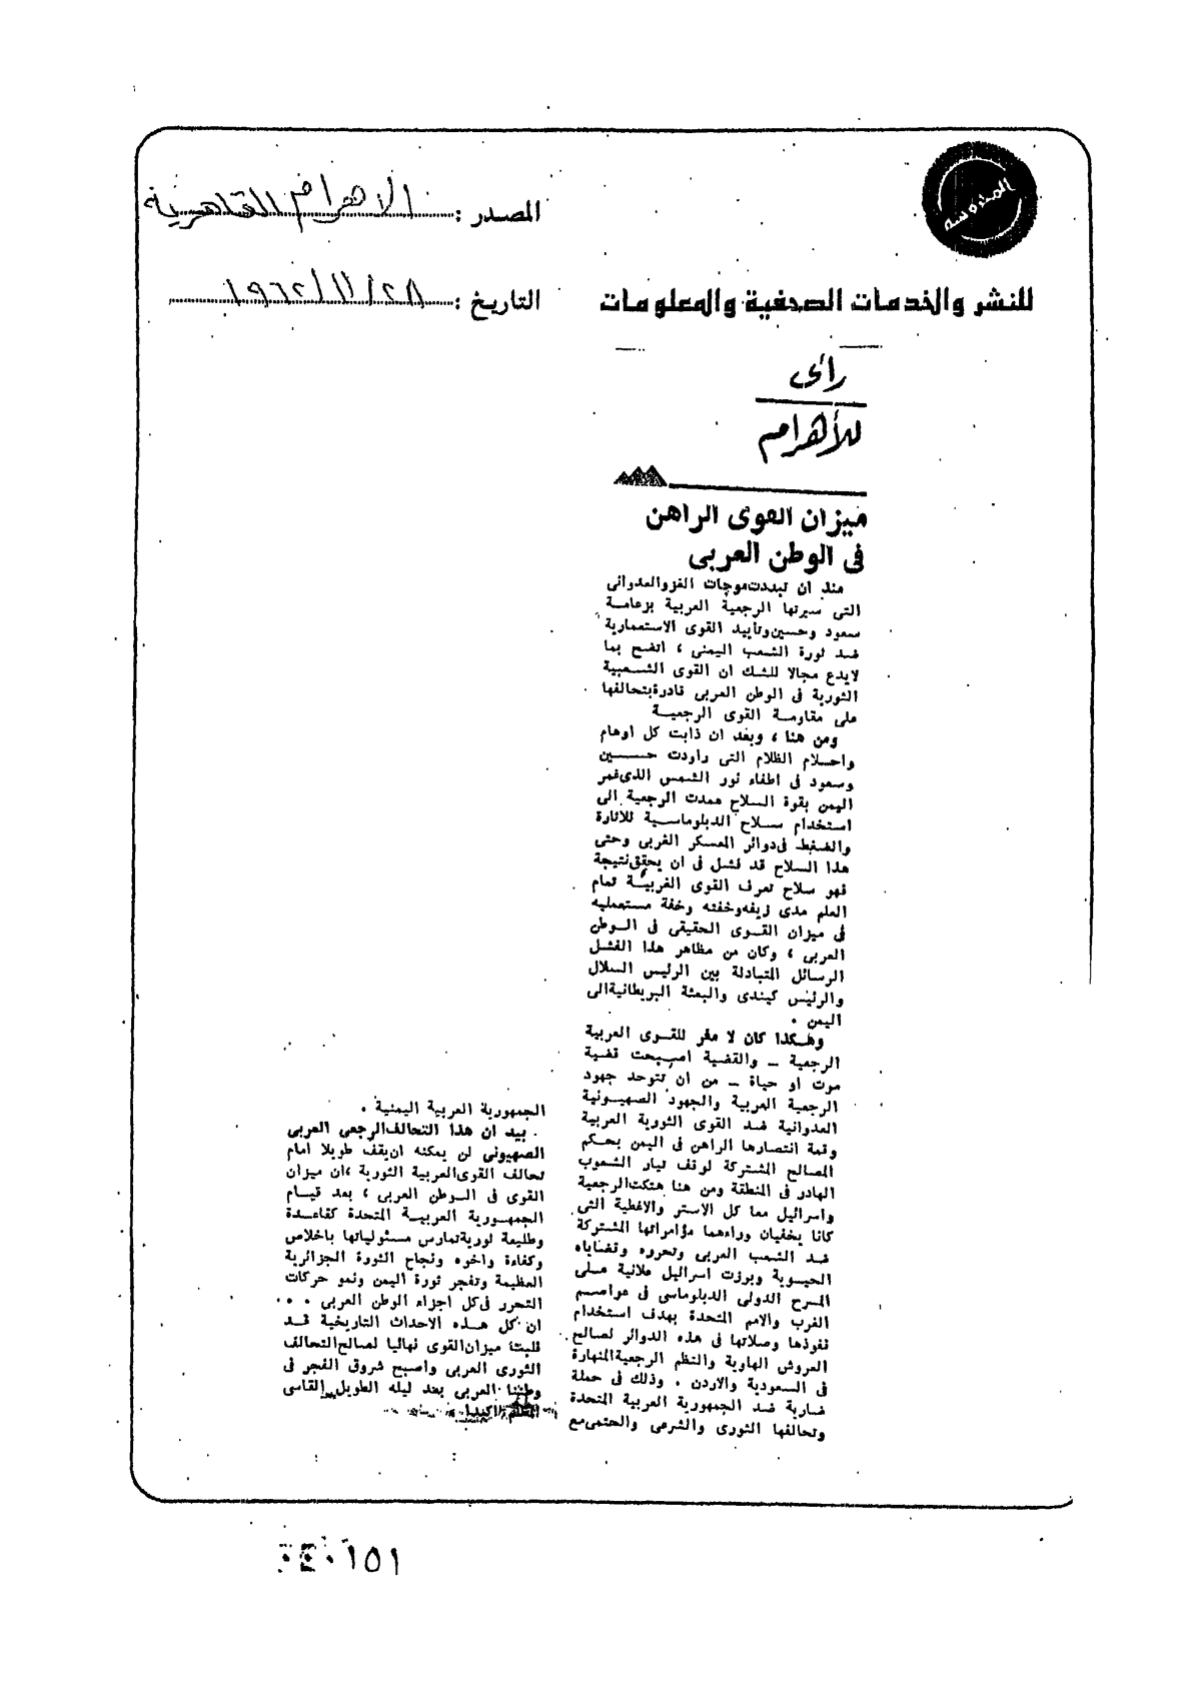 المدروسه
المصدر : الاهرام القاهرية
للنشر والخدمات الصحفية والمعلومات
التاريخ : ١٩٦٢/١١/٢٨
رأى
للأهرام
ميزان القوى الراهن
فى الوطن العربى
منذ ان تبددت موجات الغزو العدوانى
التى سيرتها الرجعية العربية بزعامة
سعود وحسين وتأييد القوى الاستعمارية
ضد ثورة الشعب اليمنى ، اتضح بما
لايدع مجالا للشك ان القوى الشعبية
الثورية فى الوطن العربى قادرة بتحالفها
على مقاومة القوى الرجعية
ومن هنا ، وبعد ان ذابت كل اوهام
واحلام الظلام التى راودت حسين
وسعود فى اطفاء نور الشمس الذى غمر
اليمن بقوة السلاح عمدت الرجعية الى
استخدام سلاح الدبلوماسية للاثارة
والضغط فى دوائر المعسكر الغربى وحتى
هذا السلاح قد فشل فى ان يحقق نتيجة
فهو سلاح تعرف القوى الغربية تمام
العلم مدى زيفه وخفته وخفة مستعمليه
فى ميزان القوى الحقيقى فى الوطن
العربى ، وكان من مظاهر هذا الفشل
الرسائل المتبادلة بين الرئيس السلال
والرئيس كيندى والبعثة البريطانية الى
اليمن .
وهكذا كان لا مفر للقوى العربية
الرجعية ــ والقضية اصبحت قضية
موت او حياة ــ من ان تتوحد جهود
الرجعية العربية والجهود الصهيونية
العدوانية ضد القوى الثورية العربية
وقمة انتصارها الراهن فى اليمن بحكم
المصالح المشتركة لوقف تيار الشعوب
الهادر فى المنطقة ومن هنا هتكت الرجعية
واسرائيل معا كل الاستر والاغطية التى
كانا يخفيان وراءهما مؤامراتها المشتركة
ضد الشعب العربى وتحرره وقضاياه
الحيوية وبرزت اسرائيل علانية على
المسرح الدولى الدبلوماسى فى عواصم
الغرب والامم المتحدة بهدف استخدام
نفوذها وصلاتها فى هذه الدوائر لصالح
العروش الهاوية والنظم الرجعية المنهارة
فى السعودية والاردن . وذلك فى حملة
ضارية ضد الجمهورية العربية المتحدة
وتحالفها الثورى والشرعى والحتمى مع
الجمهورية العربية اليمنية .
بيد ان هذا التحالف الرجعى العربى
الصهيونى لن يمكنه ان يقف طويلا امام
تحالف القوى العربية الثورية ، ان ميزان
القوى فى الوطن العربى ، بعد قيام
الجمهورية العربية المتحدة كقاعدة
وطليعة ثورية تمارس مسئولياتها باخلاص
وكفاءة واخوه ونجاح الثورة الجزائرية
العظيمة وتفجر ثورة اليمن ونمو حركات
التحرر فى كل اجزاء الوطن العربى . . .
ان كل هذه الاحداث التاريخية قد
قلبت ميزان القوى نهائيا لصالح التحالف
الثورى العربى واصبح شروق الفجر فى
وطننا العربى بعد ليله الطويل القاسى
المظلم اكيدا
٠٤٠١٥١